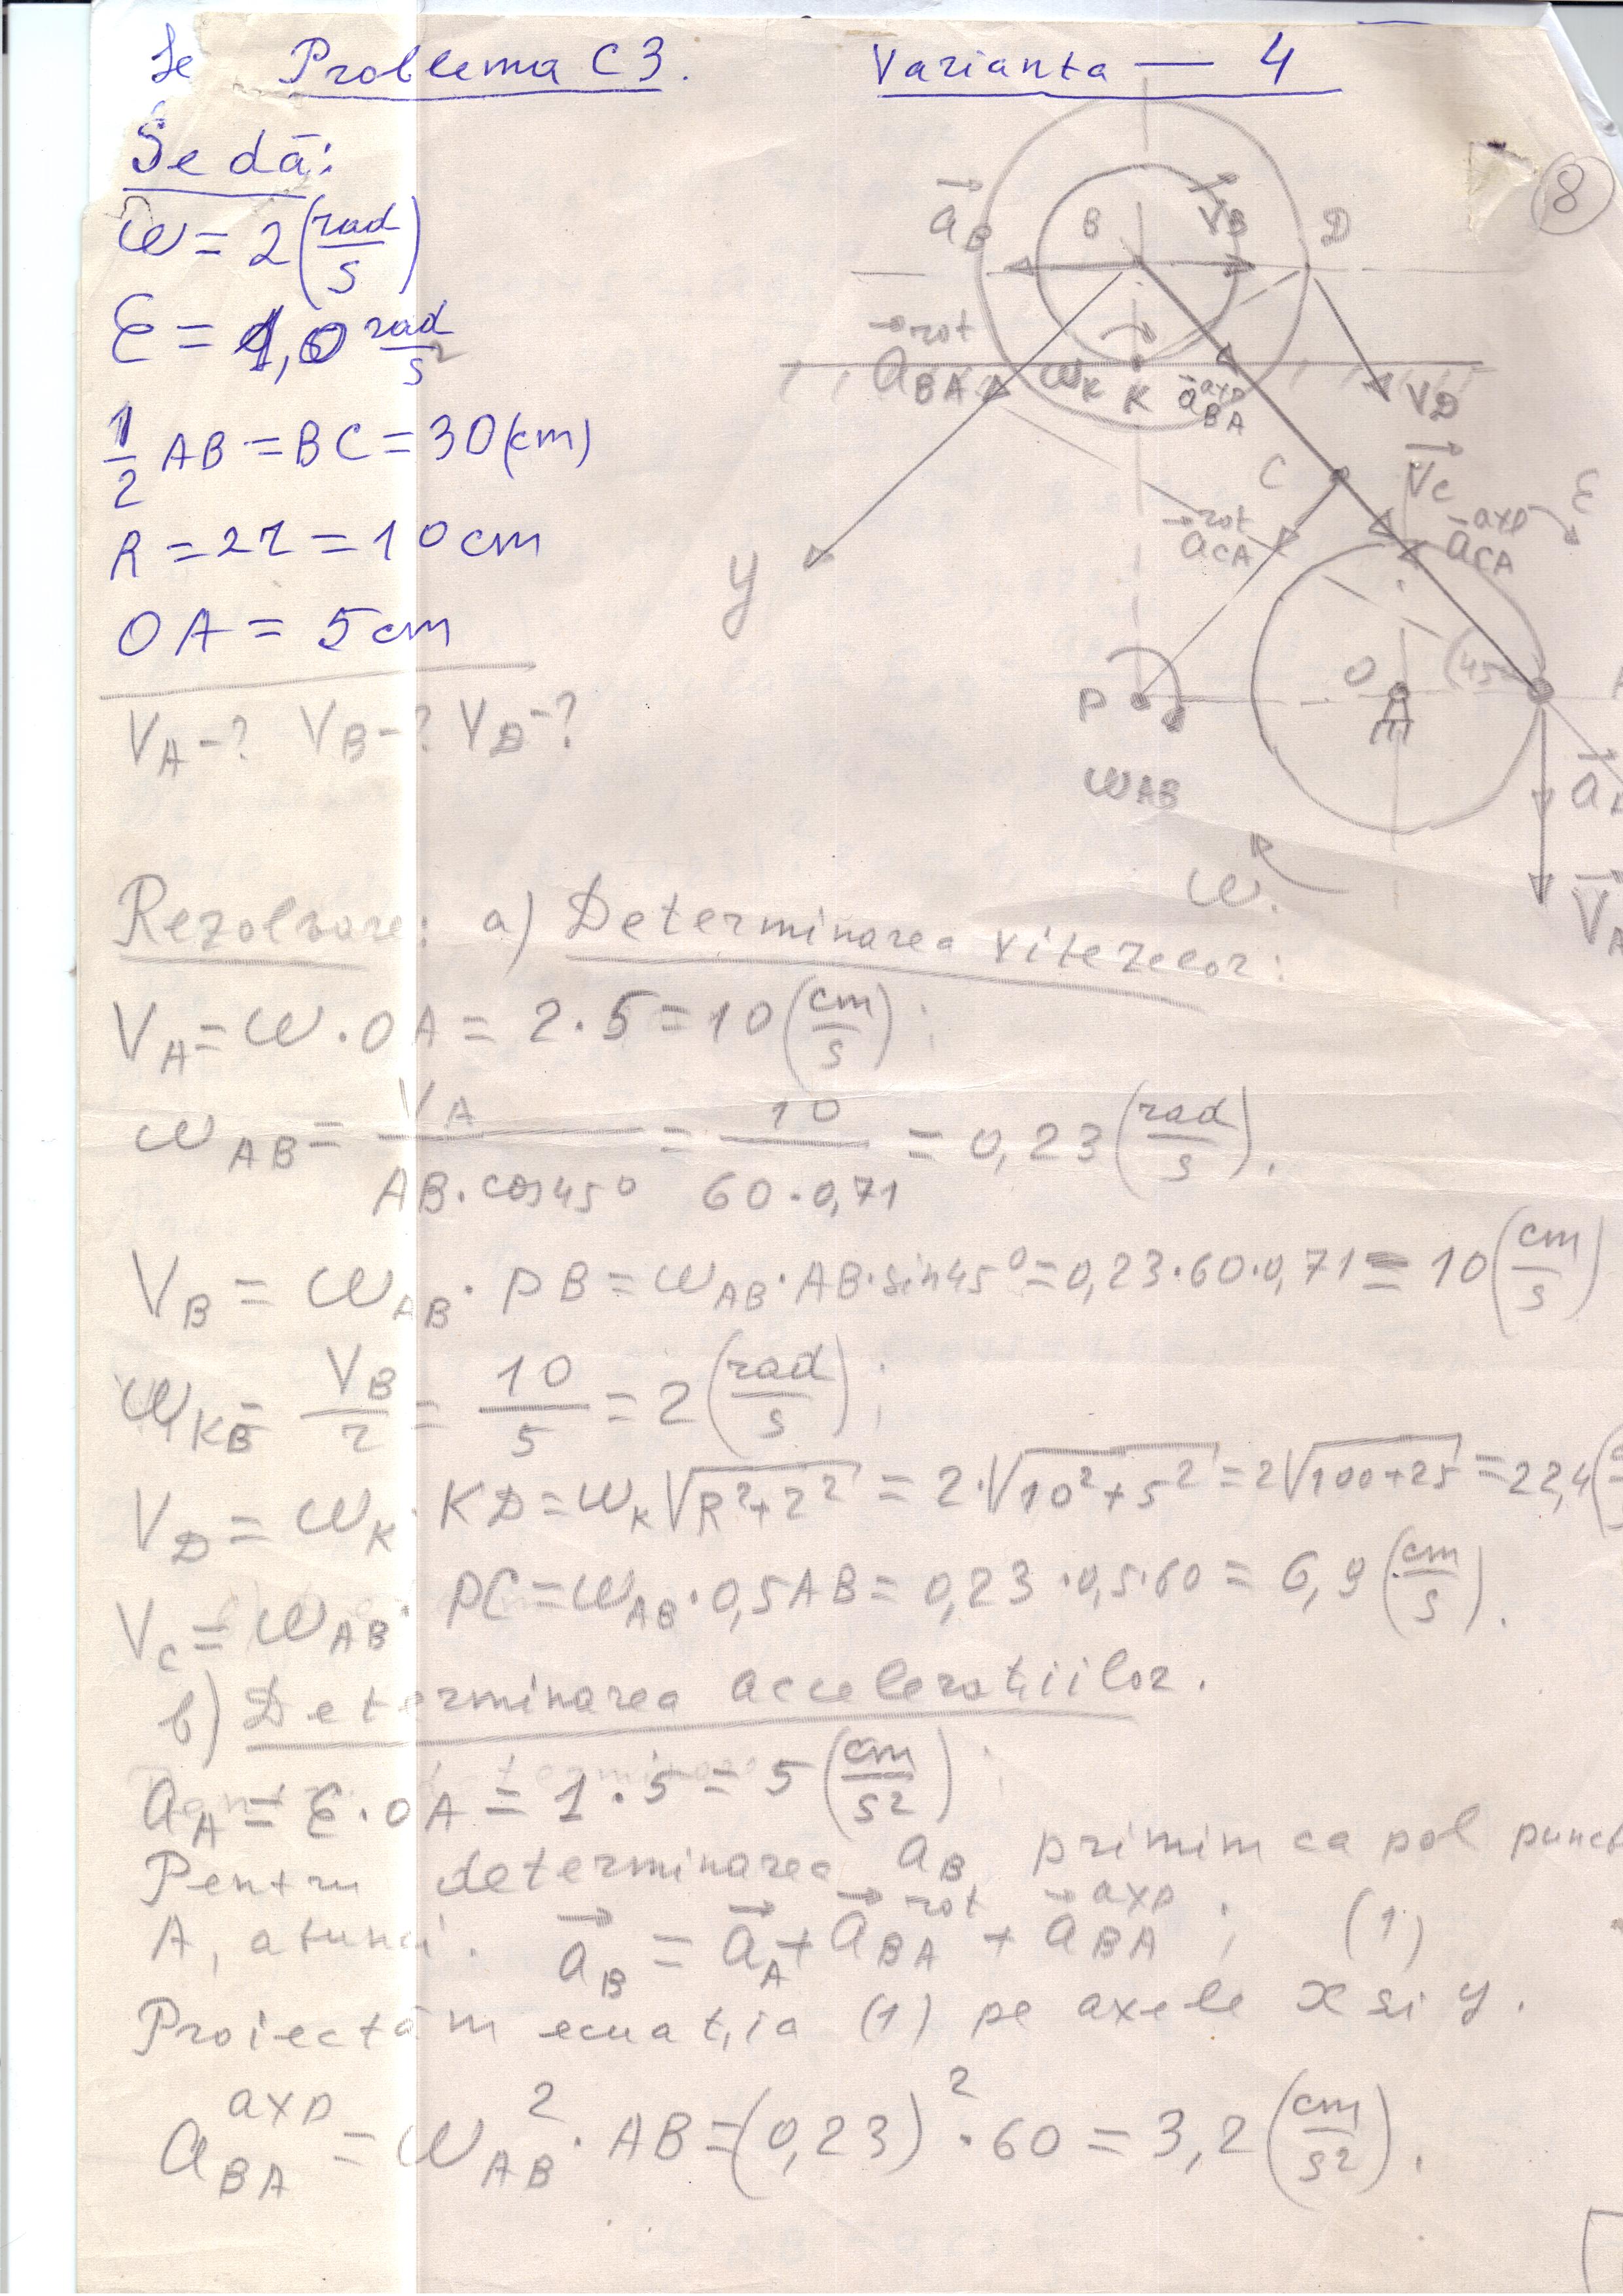 Se Problema C3. Varianta — 4
8
Se dă:
ω = 2 (rad/s)
ε = 1,0 rad/s²
1/2 AB = BC = 30 (cm)
R = 2r = 10 cm
OA = 5 cm
V_A - ? V_B - ? V_D - ?
a_B B V_B D
a_BA^rot ω_K K a_BA^axp V_D
C V_C ε
y a_CA^rot a_CA^axp
P O 45°
ω_AB a
ω. V_A
Rezolvare: a) Determinarea vitezelor:
V_A = ω · OA = 2 · 5 = 10 (cm/s);
ω_AB = V_A / (AB · cos45°) = 10 / (60 · 0,71) = 0,23 (rad/s).
V_B = ω_AB · PB = ω_AB · AB · sin45° = 0,23 · 60 · 0,71 = 10 (cm/s)
ω_KB = V_B / r = 10 / 5 = 2 (rad/s);
V_D = ω_K · KD = ω_K √(R² + r²) = 2 · √(10² + 5²) = 2√(100 + 25) = 22,4
V_C = ω_AB · PC = ω_AB · 0,5 AB = 0,23 · 0,5 · 60 = 6,9 (cm/s).
b) Determinarea accelerațiilor.
a_A = ε · OA = 1 · 5 = 5 (cm/s²);
Pentru determinarea a_B primim ca pol punct
A, atunci. a_B = a_A + a_BA^rot + a_BA^axp ; (1)
Proiectăm ecuația (1) pe axele x si y.
a_BA^axp = ω_AB² · AB = (0,23)² · 60 = 3,2 (cm/s²).